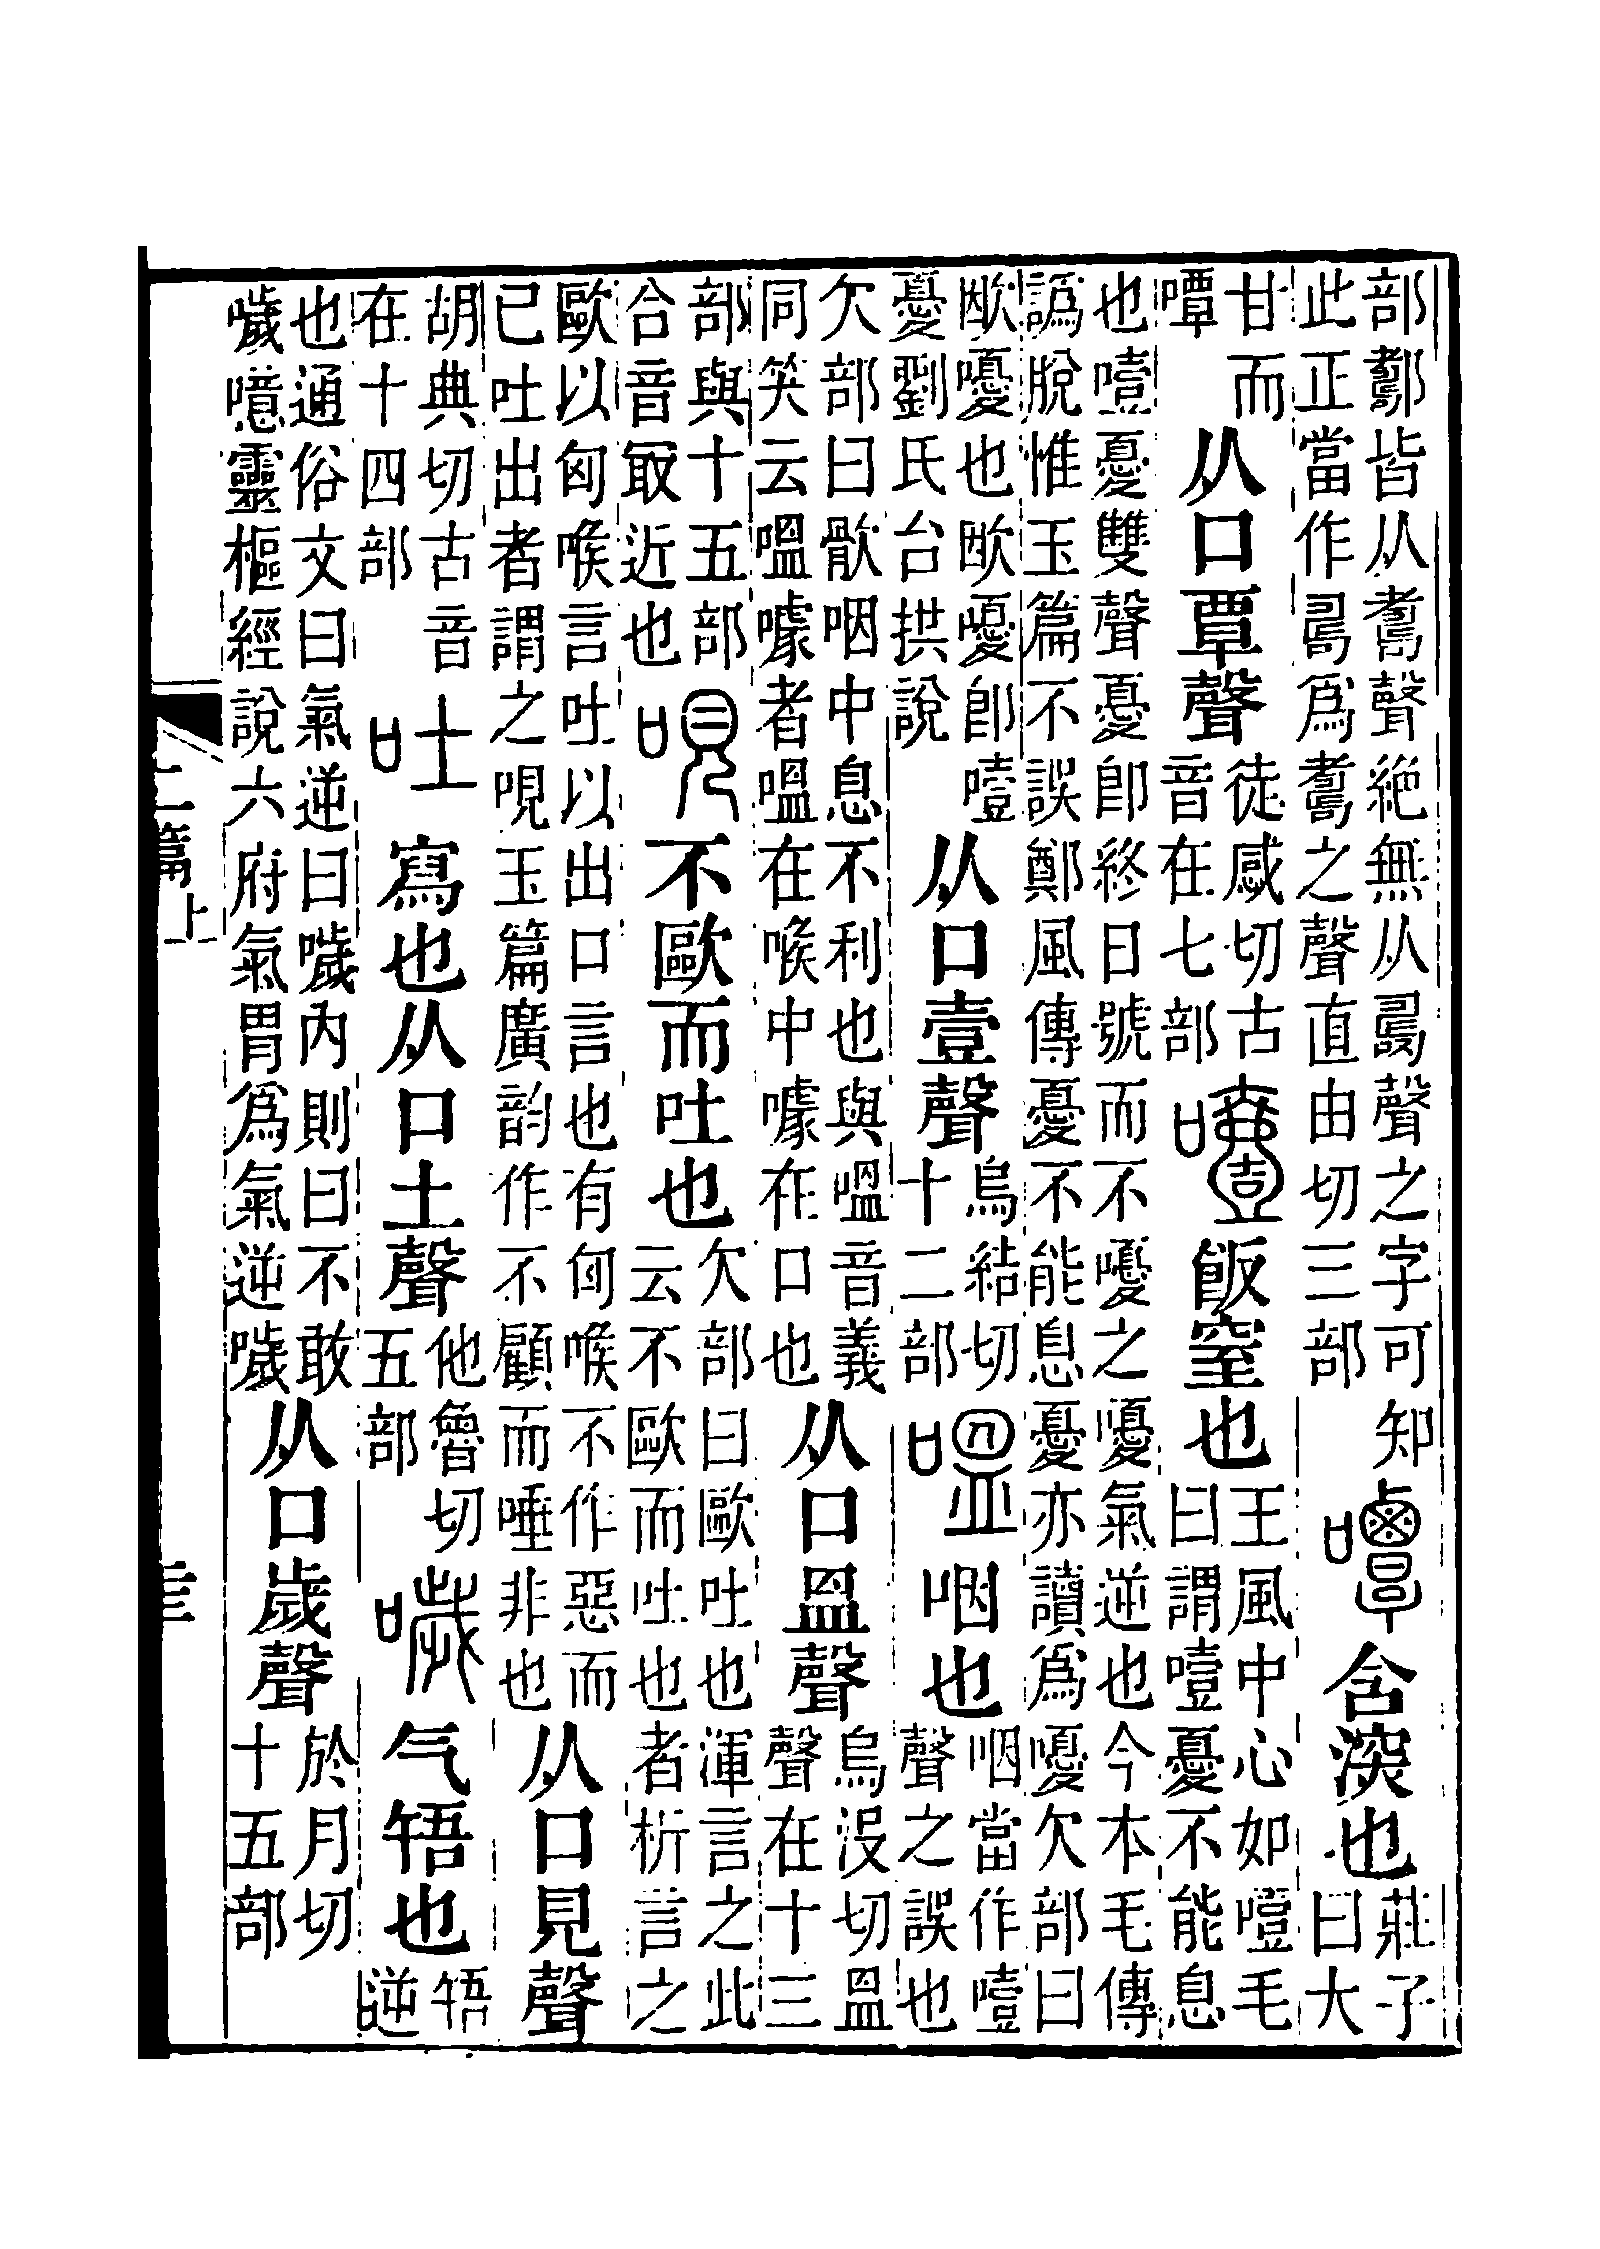 部𨞪皆从𦓃聲絶無从𠷎聲之字可知此正當作𠷎爲𦓃之聲直由切三部嘾含深也莊子曰大
甘而嘾从口覃聲徒感切古音在七部噎飯窒也王風中心如噎毛曰謂噎憂不能息
也噎憂雙聲憂卽終日號而不嚘之嚘氣逆也今本毛傳譌脫惟玉篇不誤鄭風傳憂不能息憂亦讀爲嚘欠部曰
欭嚘也欭嚘卽噎憂劉氏台拱說从口壹聲烏結切十二部嗢咽也咽當作噎聲之誤也
欠部曰咽中息不利也與嗢音義同笑云嗢噱者嗢在喉中噱在口也从口𥁕聲烏沒切𥁕聲在十三
部與十五部合音冣近也哯不歐而吐也欠部曰歐吐也渾言之此云不歐而吐也者析言之
歐以匈喉言吐以出口言也有匈喉不作惡而已吐出者謂之哯玉篇廣韵作不顧而唾非也从口見聲
胡典切古音在十四部吐寫也从口土聲他魯切五部噦气啎也啎逆
也通俗文曰氣逆曰噦內則曰不敢噦噫靈樞經說六府氣胃爲氣逆噦从口歲聲於月切十五部
二篇上